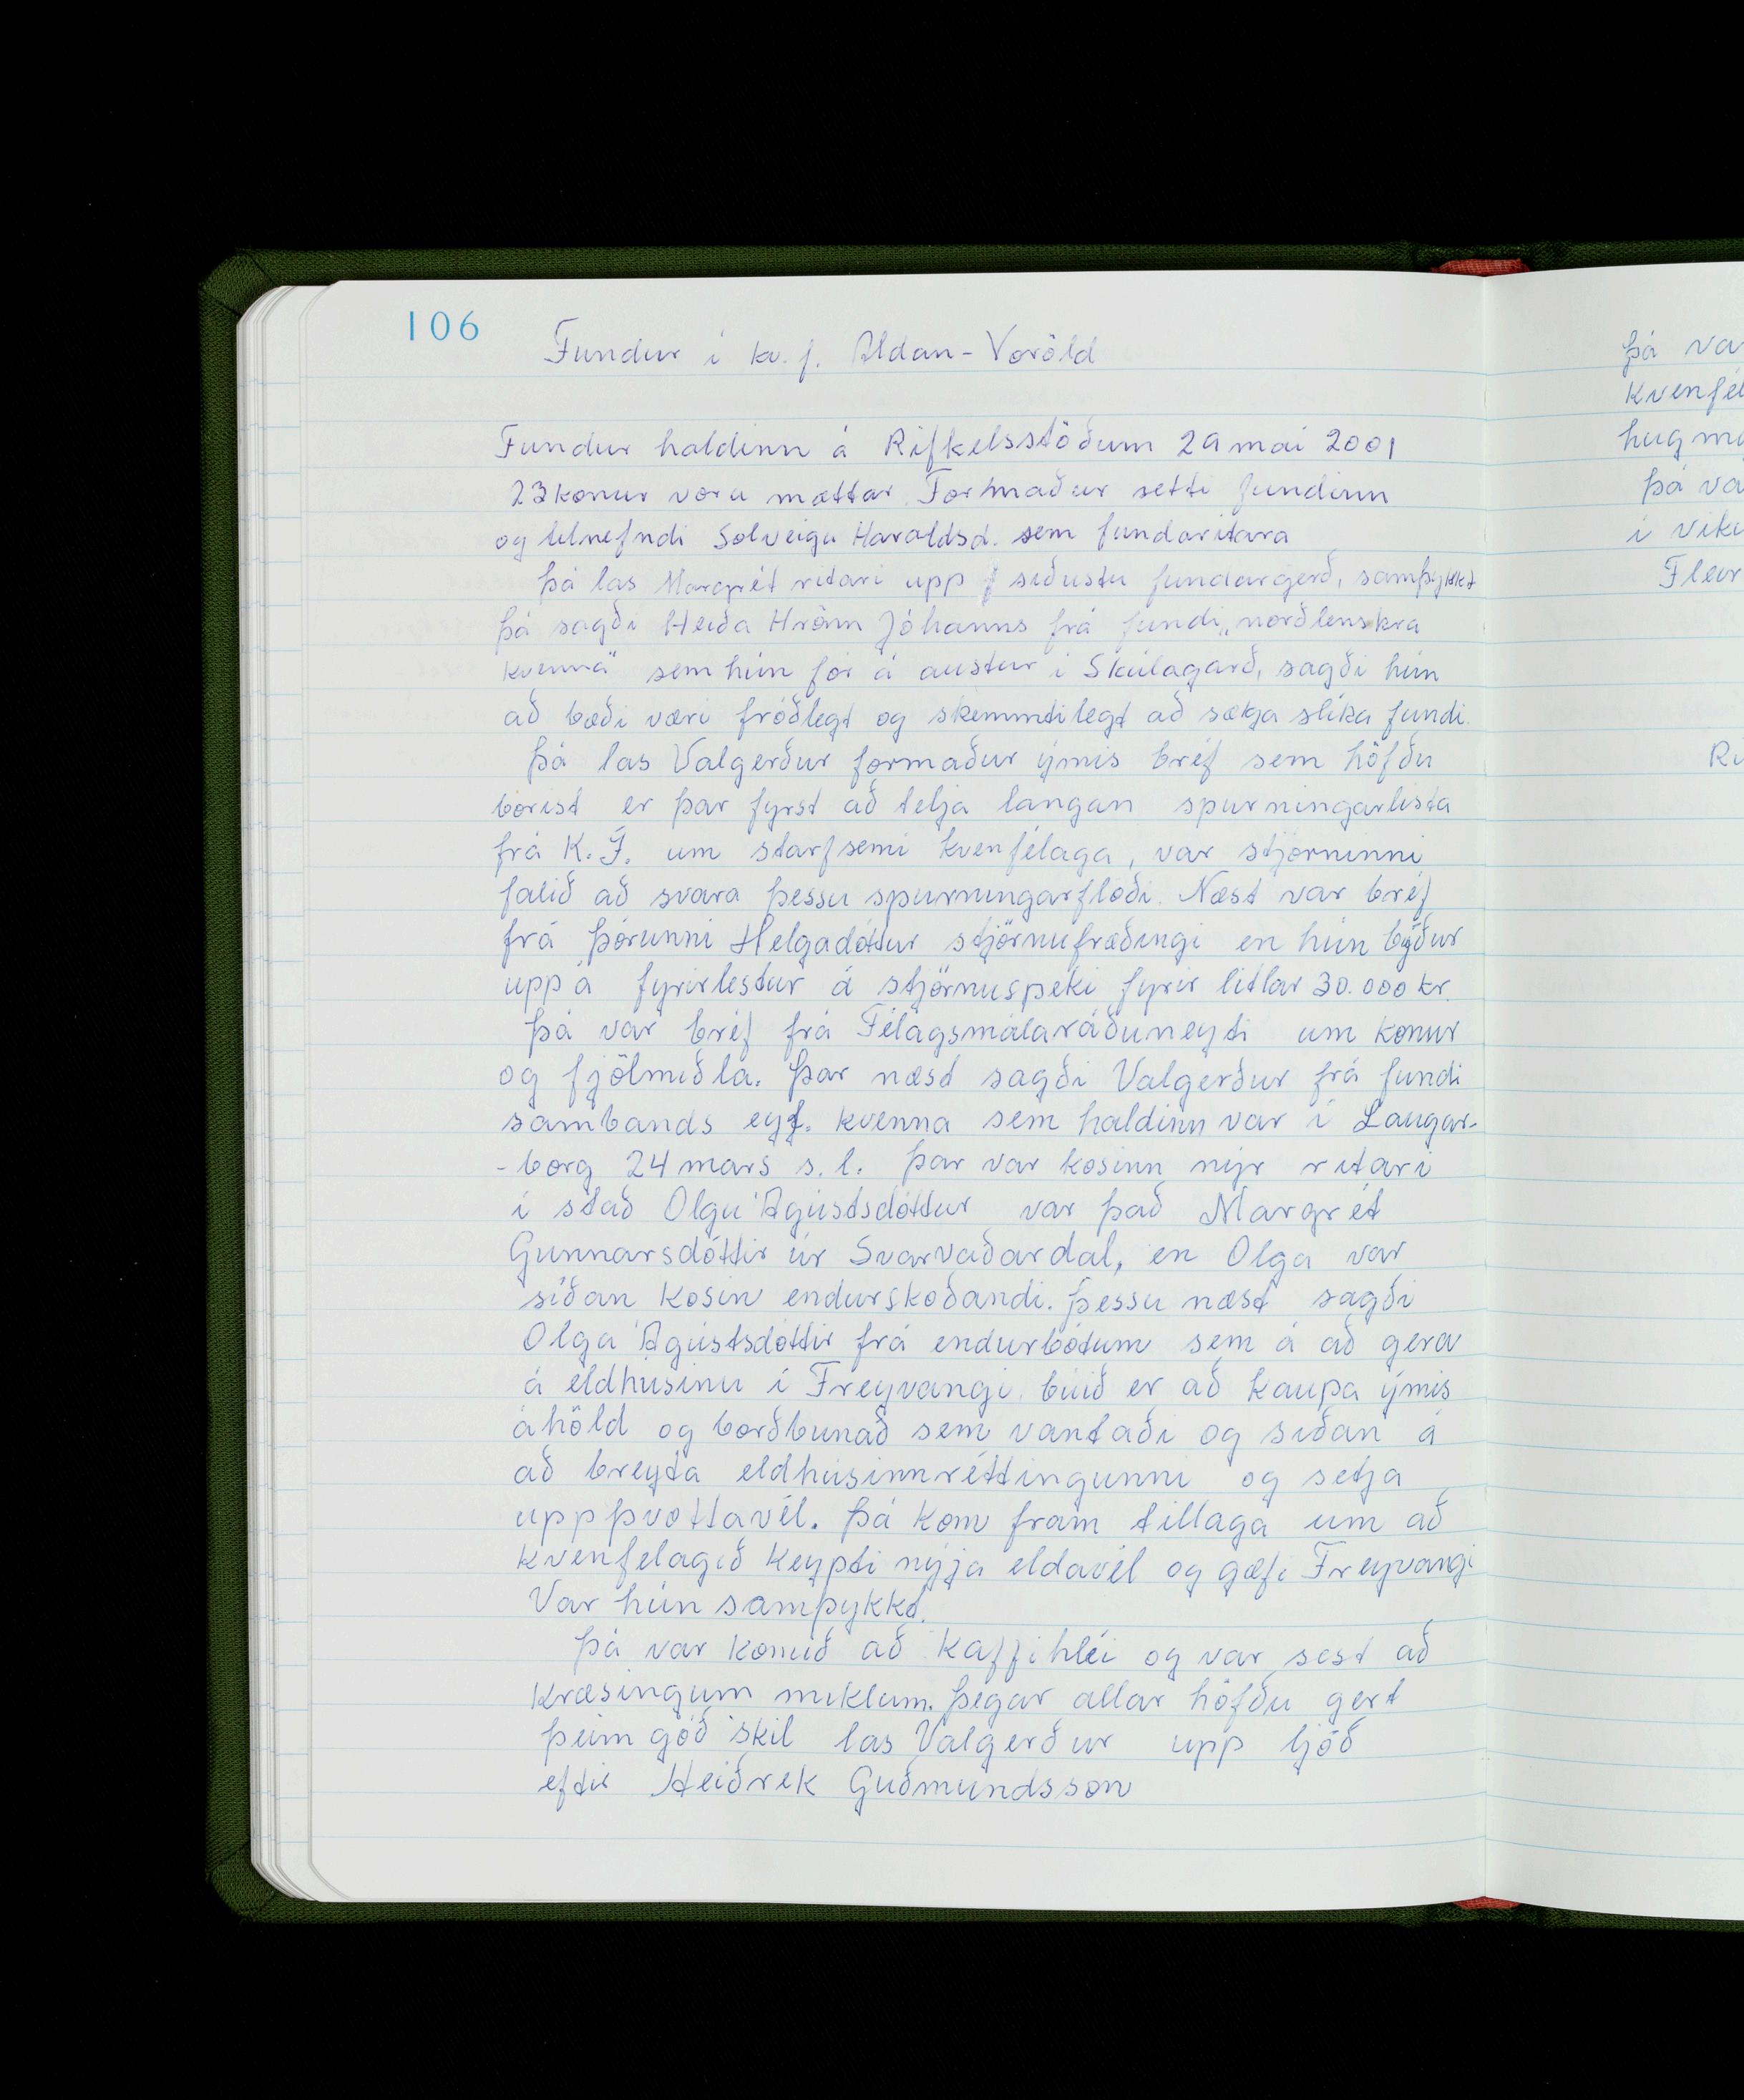 106
Fundur í kv. f. Aldan - Voröld
Fundur haldinn á Rifkelsstöðum 29 mai 2001
23 konur voru mættar. Formaður setti fundinn
og tilnefndi Solveigu Haraldsd. sem fundaritara
Þá las Margrét ritari upp síðustu fundargerð, samþykkt
Þá sagði Heiða Hrönn Jóhanns frá fundi „norðlenskra
kvenna" sem hún fór á austur í Skúlagarð, sagði hún
að bæði væri fróðlegt og skemmtilegt að sækja slíka fundi.
Þá las Valgerður formaður ýmis bréf sem höfðu
borist er þar fyrst að telja langan spurningarlista
frá K.Í. um starfsemi kvenfélaga, var stjórninni
falið að svara þessu spurningarflóði. Næst var bréf
frá Þórunni Helgadóttur stjörnufræðingi en hún býður
upp á fyrirlestur á stjörnuspeki fyrir litlar 30.000 kr.
Þá var bréf frá Félagsmálaráðuneyti um konur
og fjölmiðla. Þar næst sagði Valgerður frá fundi
sambands eyf. kvenna sem haldinn var í Laugar-
-borg 24 mars s.l. Þar var kosinn nýr ritari
í stað Olgu Ágústsdóttur var það Margrét
Gunnarsdóttir úr Svarvaðardal, en Olga var
síðan kosin endurskoðandi. Þessu næst sagði
Olga Ágústsdóttir frá endurbótum sem á að gera
á eldhúsinu í Freyvangi, búið er að kaupa ýmis
áhöld og borðbunað sem vantaði og síðan á
að breyta eldhúsinnréttingunni og setja
upp þvottavél. Þá kom fram tillaga um að
kvenfelagið keypti nýja eldavél og gæfi Freyvangi
Var hún samþykkt.
Þá var komið að kaffihléi og var sest að
kræsingum miklum. Þegar allar höfðu gert
þeim góð skil las Valgerður upp ljóð
eftir Heiðrek Guðmundsson
þá va
kvenfél
hugmy
þá va
í viku
Fleir